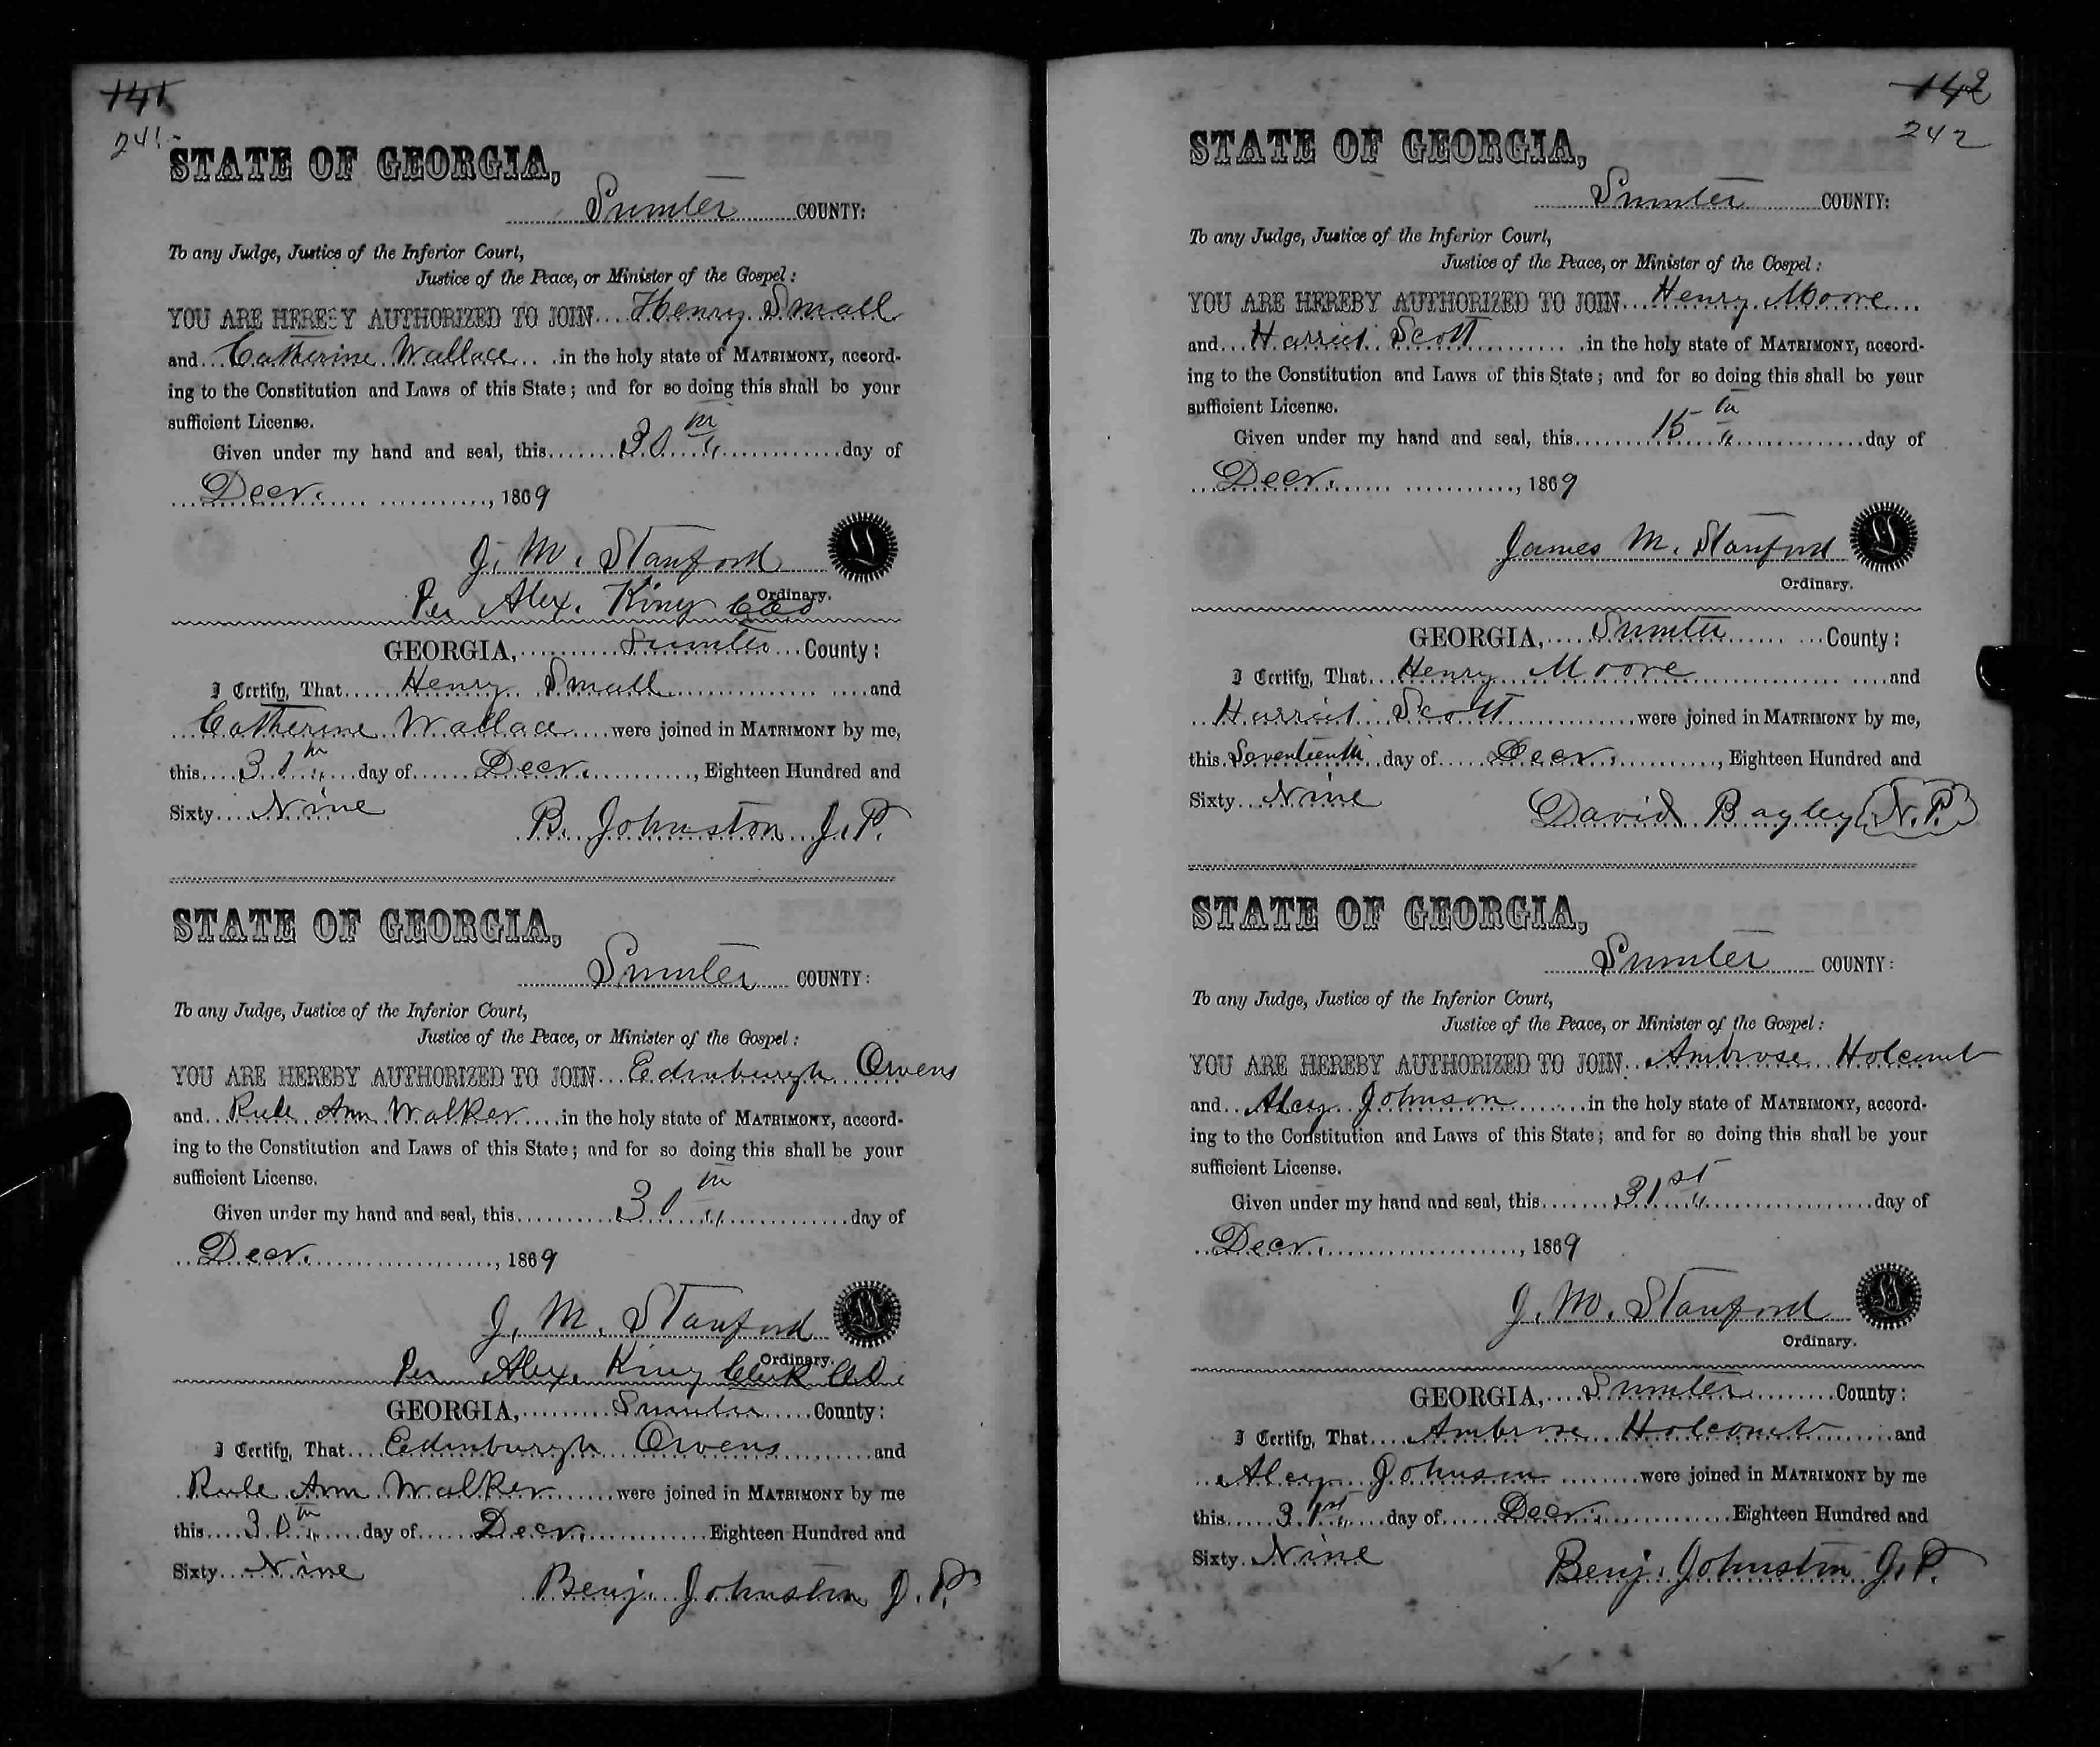 141
241
STATE OF GEORGIA,
Sumter COUNTY:
To any Judge, Justice of the Inferior Court,
Justice of the Peace, or Minister of the Gospel:
YOU ARE HEREBY AUTHORIZED TO JOIN Henry Small
and Catherine Wallace in the holy state of MATRIMONY, accord-
ing to the Constitution and Laws of this State; and for so doing this shall be your
sufficient License.
Given under my hand and seal, this 30th day of
Decr. , 1869
J. M. Stanford
Ordinary.
Per Alex. King CCO
GEORGIA, Sumter County:
I Certify, That Henry Small and
Catherine Wallace were joined in MATRIMONY by me,
this 30th day of Decr. , Eighteen Hundred and
Sixty Nine
B. Johnston J.P.
STATE OF GEORGIA,
Sumter COUNTY:
To any Judge, Justice of the Inferior Court,
Justice of the Peace, or Minister of the Gospel:
YOU ARE HEREBY AUTHORIZED TO JOIN Edinburgh Owens
and Rule Ann Walker in the holy state of MATRIMONY, accord-
ing to the Constitution and Laws of this State; and for so doing this shall be your
sufficient License.
Given under my hand and seal, this 30th day of
Decr. , 1869
J. M. Stanford
Ordinary.
Per Alex. King Clerk C.O.
GEORGIA, Sumter County:
I Certify, That Edinburgh Owens and
Rule Ann Walker were joined in MATRIMONY by me
this 30th day of Decr. Eighteen Hundred and
Sixty Nine
Benj. Johnston J.P.
142
242
STATE OF GEORGIA,
Sumter COUNTY:
To any Judge, Justice of the Inferior Court,
Justice of the Peace, or Minister of the Gospel:
YOU ARE HEREBY AUTHORIZED TO JOIN Henry Moore
and Harriet Scott in the holy state of MATRIMONY, accord-
ing to the Constitution and Laws of this State; and for so doing this shall be your
sufficient License.
Given under my hand and seal, this 15th day of
Decr. , 1869
James M. Stanford
Ordinary.
GEORGIA, Sumter County:
I Certify, That Henry Moore and
Harriet Scott were joined in MATRIMONY by me,
this Seventeenth day of Decr. , Eighteen Hundred and
Sixty Nine
David Bagley N.P.
STATE OF GEORGIA,
Sumter COUNTY:
To any Judge, Justice of the Inferior Court,
Justice of the Peace, or Minister of the Gospel:
YOU ARE HEREBY AUTHORIZED TO JOIN Ambrose Holcomb
and Alcy Johnson in the holy state of MATRIMONY, accord-
ing to the Constitution and Laws of this State; and for so doing this shall be your
sufficient License.
Given under my hand and seal, this 31st day of
Decr. , 1869
J. M. Stanford
Ordinary.
GEORGIA, Sumter County:
I Certify, That Ambrose Holcomb and
Alcy Johnson were joined in MATRIMONY by me
this 31st day of Decr. Eighteen Hundred and
Sixty Nine
Benj. Johnston J.P.